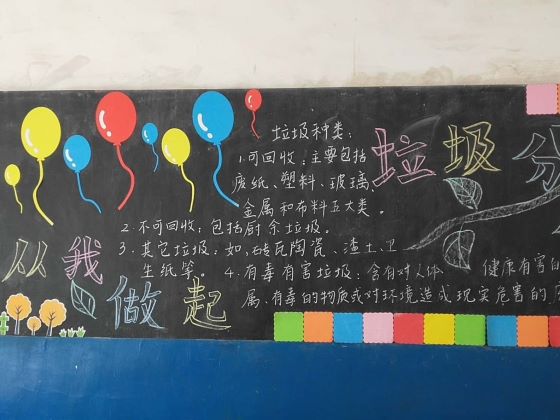 垃圾种类:
1.可回收:主要包括
废纸、塑料、玻璃、
金属和布料五大类。
2.不可回收:包括厨余垃圾。
3.其它垃圾:如,砖瓦陶瓷、渣土、卫
生纸等。
4.有毒有害垃圾:含有对人体 健康有害的
属、有毒的物质或对环境造成现实危害的
垃圾分
从我
做起